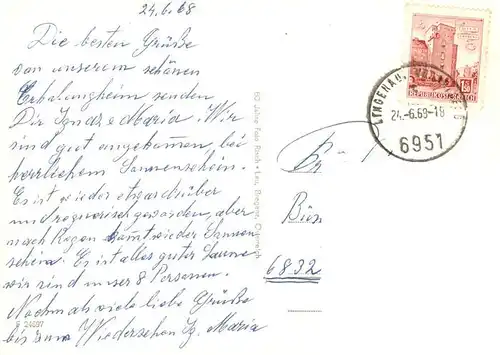 24.6.68
Die besten Grüße
von unserem schönen
Erholungheim senden
Dir Ignaz e Maria. Wir
sind gut angekommen bei
herrlichem Sonnenschein.
Es ist wieder etwas trüber
und regnerisch geworden, aber
nach Regen kommt wieder Sonnen
schein. Es ist alles guter Laune
wir sind unser 8 Personen.
Nochmals viele liebe Grüße
bis zum Wiedersehen Maria
60 Jahre Foto Risch-Lau, Bregenz, Österreich
REPUBLIK ÖSTERREICH
LINGENAU,
24.-6.68-18
6951
6832